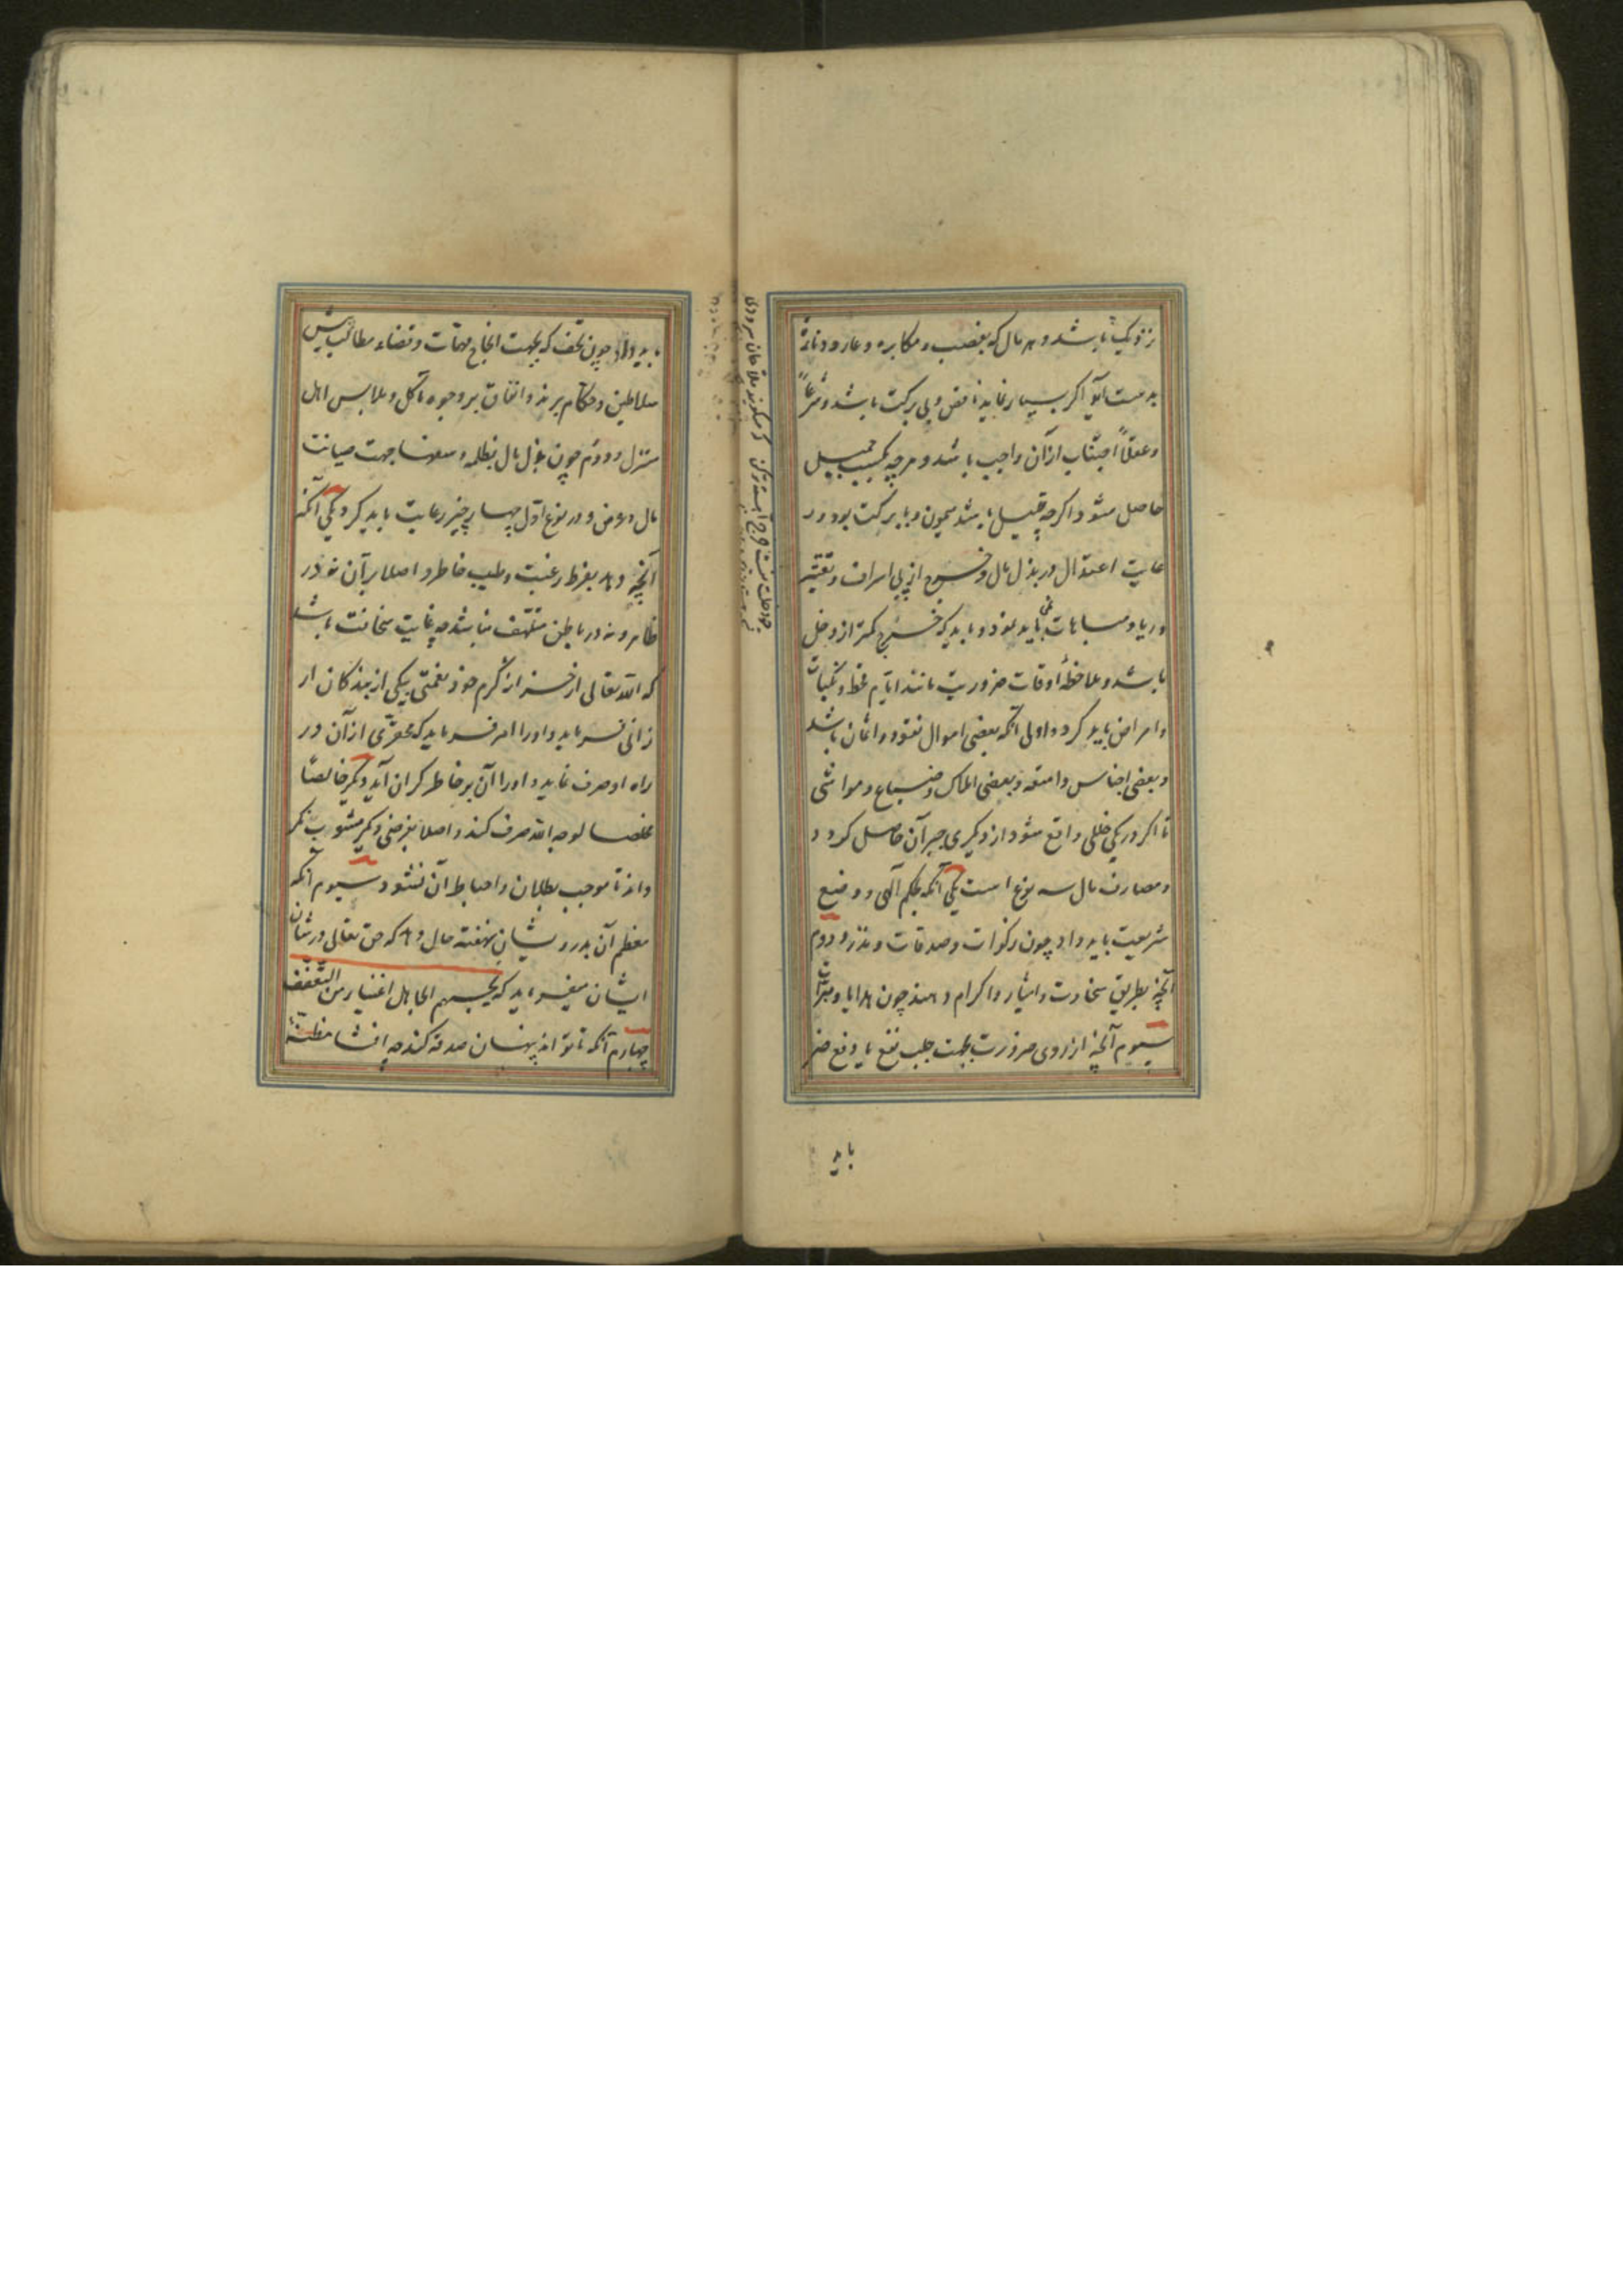 نزدیک باشد و هر مال که بغصب و مکابره و عار و دنائة
بدست آید اگر بسیار نماید ناقص و بی برکت باشد و شرعاً
و عقلاً اجتناب از آن واجب باشد و هرچه بکسب جمیل
حاصل شود اگرچه قلیل باشد میمون و با برکت بود و ر
عایت اعتدال در بذل مال و خروج از پی اسراف و تقتیر
و ریا و مباهات می باید نمود و باید که خرج کمتر از دخل
باشد و ملاحظهٔ اوقات ضروریت مانند ایام قحط و نکبات
و امراض باید کرد و اولی آنکه بعضی اموال نقود و اثمان باشد
و بعضی اجناس و امتعه و بعضی املاک و ضیاع و مواشی
تا اگر در یکی خللی واقع شود از دیگری جبر آن حاصل کردد
و مصارف مال سه نوع است یکی آنکه بحکم آلهی و وضع
شریعت باید داد چون زکوات و صدقات و نذر و دوم
آنچه بطریق سخاوت و ایثار و اکرام دهند چون هدایا و مبرات
سیوم آنچه از روی ضرورت بجهت جلب نفع یا دفع ضر
باید
باید داد چون تحف که بجهت انجاح مهمات و قضاء مطالب پیش
سلاطین و حکام برند و انفاق بر وجوه مآکل و ملابس اهل
منزل و دوم چون بذل مال بظلمه و سفها جهت صیانت
مال و عرض و در نوع اول چهار چیز رعایت باید کرد یکی آنکه
آنچه دهد بفرط رغبت و طیب خاطر و اصلا برآن نه در
ظاهر و نه در باطن متلهف نباشد چه غایت سخافت باشد
که الله تعالی از خزانه کرم خود نعمتی بیکی از بندکان ار
زانی فرماید و او را امر فرماید که محقری از آن در
راه او صرف نماید و او را آن بر خاطر کران آید دیگر خالصاً
مخلصا لوجه الله صرف کند و اصلا بغرضی دیگر مشوب نکر
داند تا موجب بطلان و احباط آن نشود سیوم آنکه
معظم آن بدرویشان نهفته حال دهد که حق تعالی در شان
ایشان میفرماید که یحسبهم الجاهل اغنیاء من التعفف
چهارم آنکه تا تواند پنهان صدقه کند چه افشا مظنهٔ